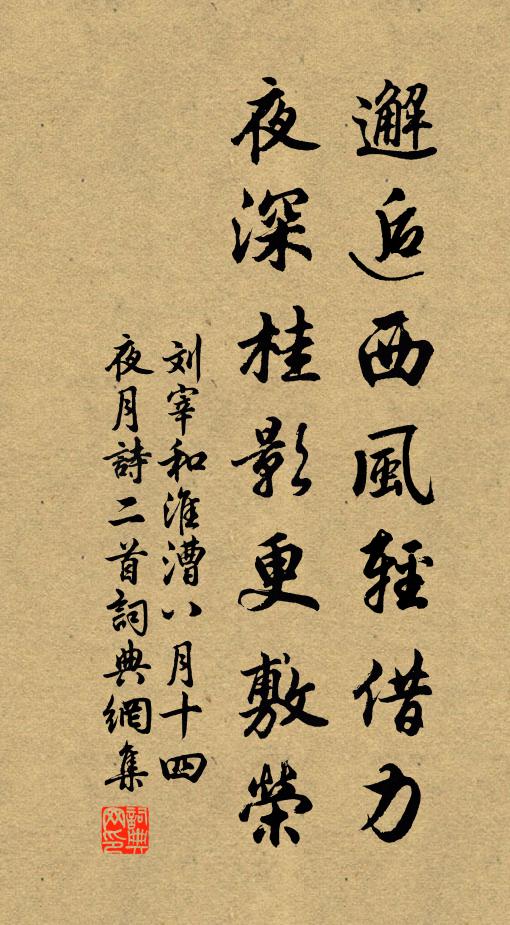 邂逅西風輕借力
夜深桂影更敷榮
刘宰和淮漕八月十四
夜月詩二首詞典網集
詞典
网印